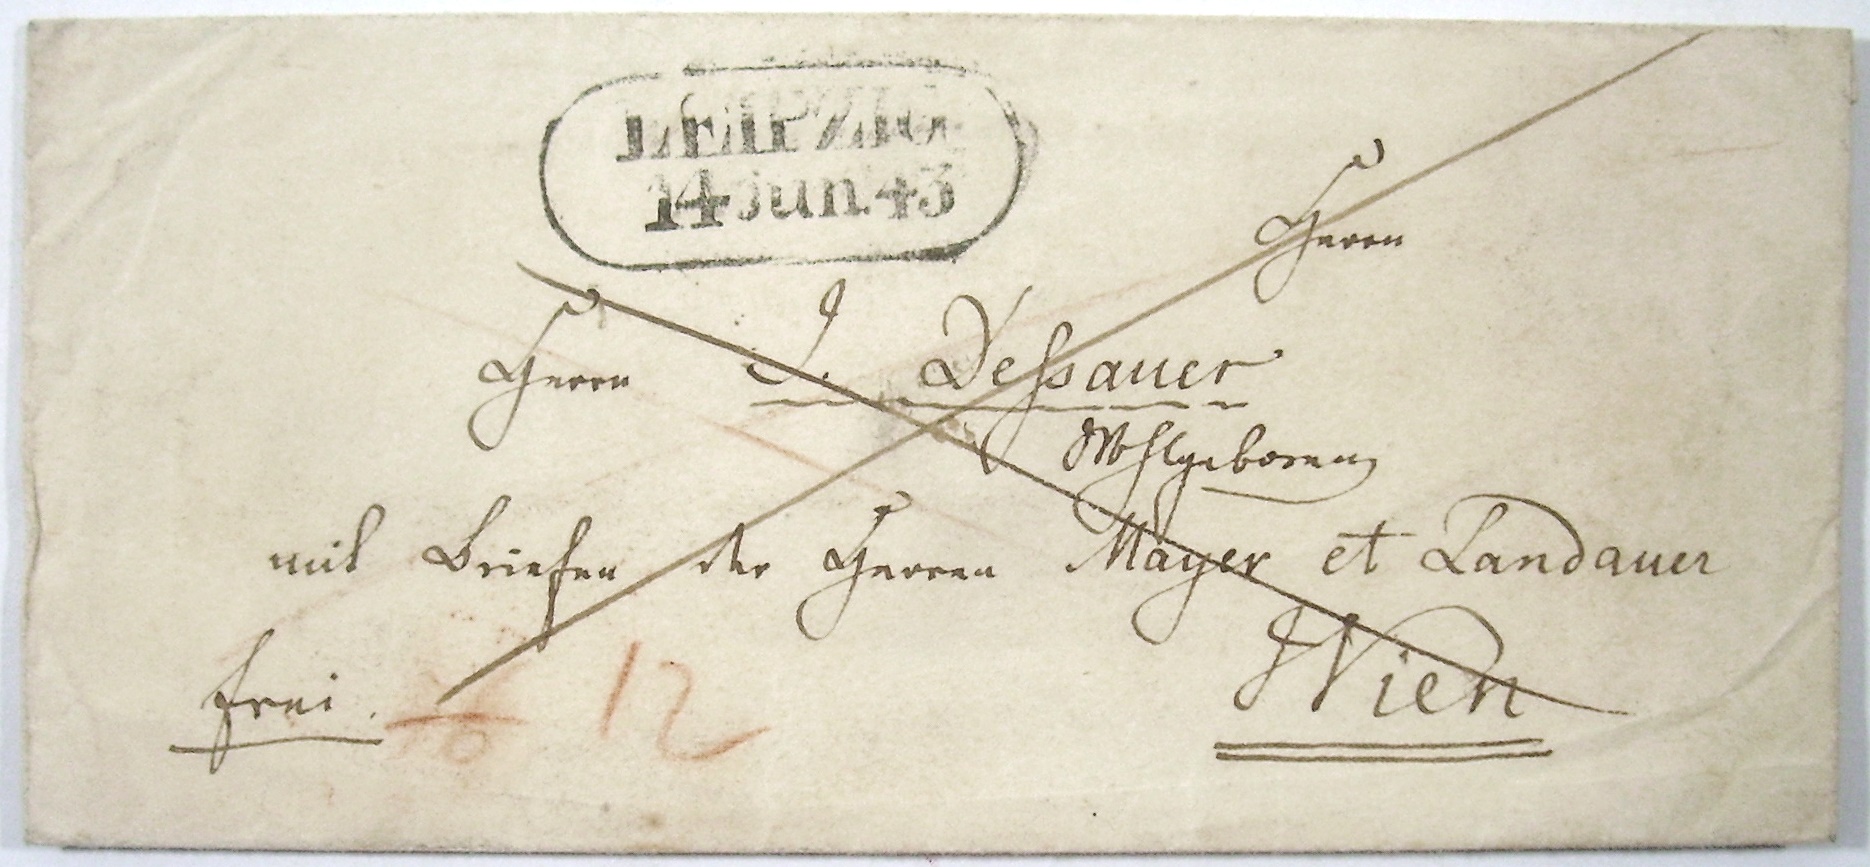 LEIPZIG
14 Jun. 43
Herrn
Herrn J. Dessauer
Wohlgeboren
mit Briefen der Herren Mayer et Landauer
frei. 12
Wien